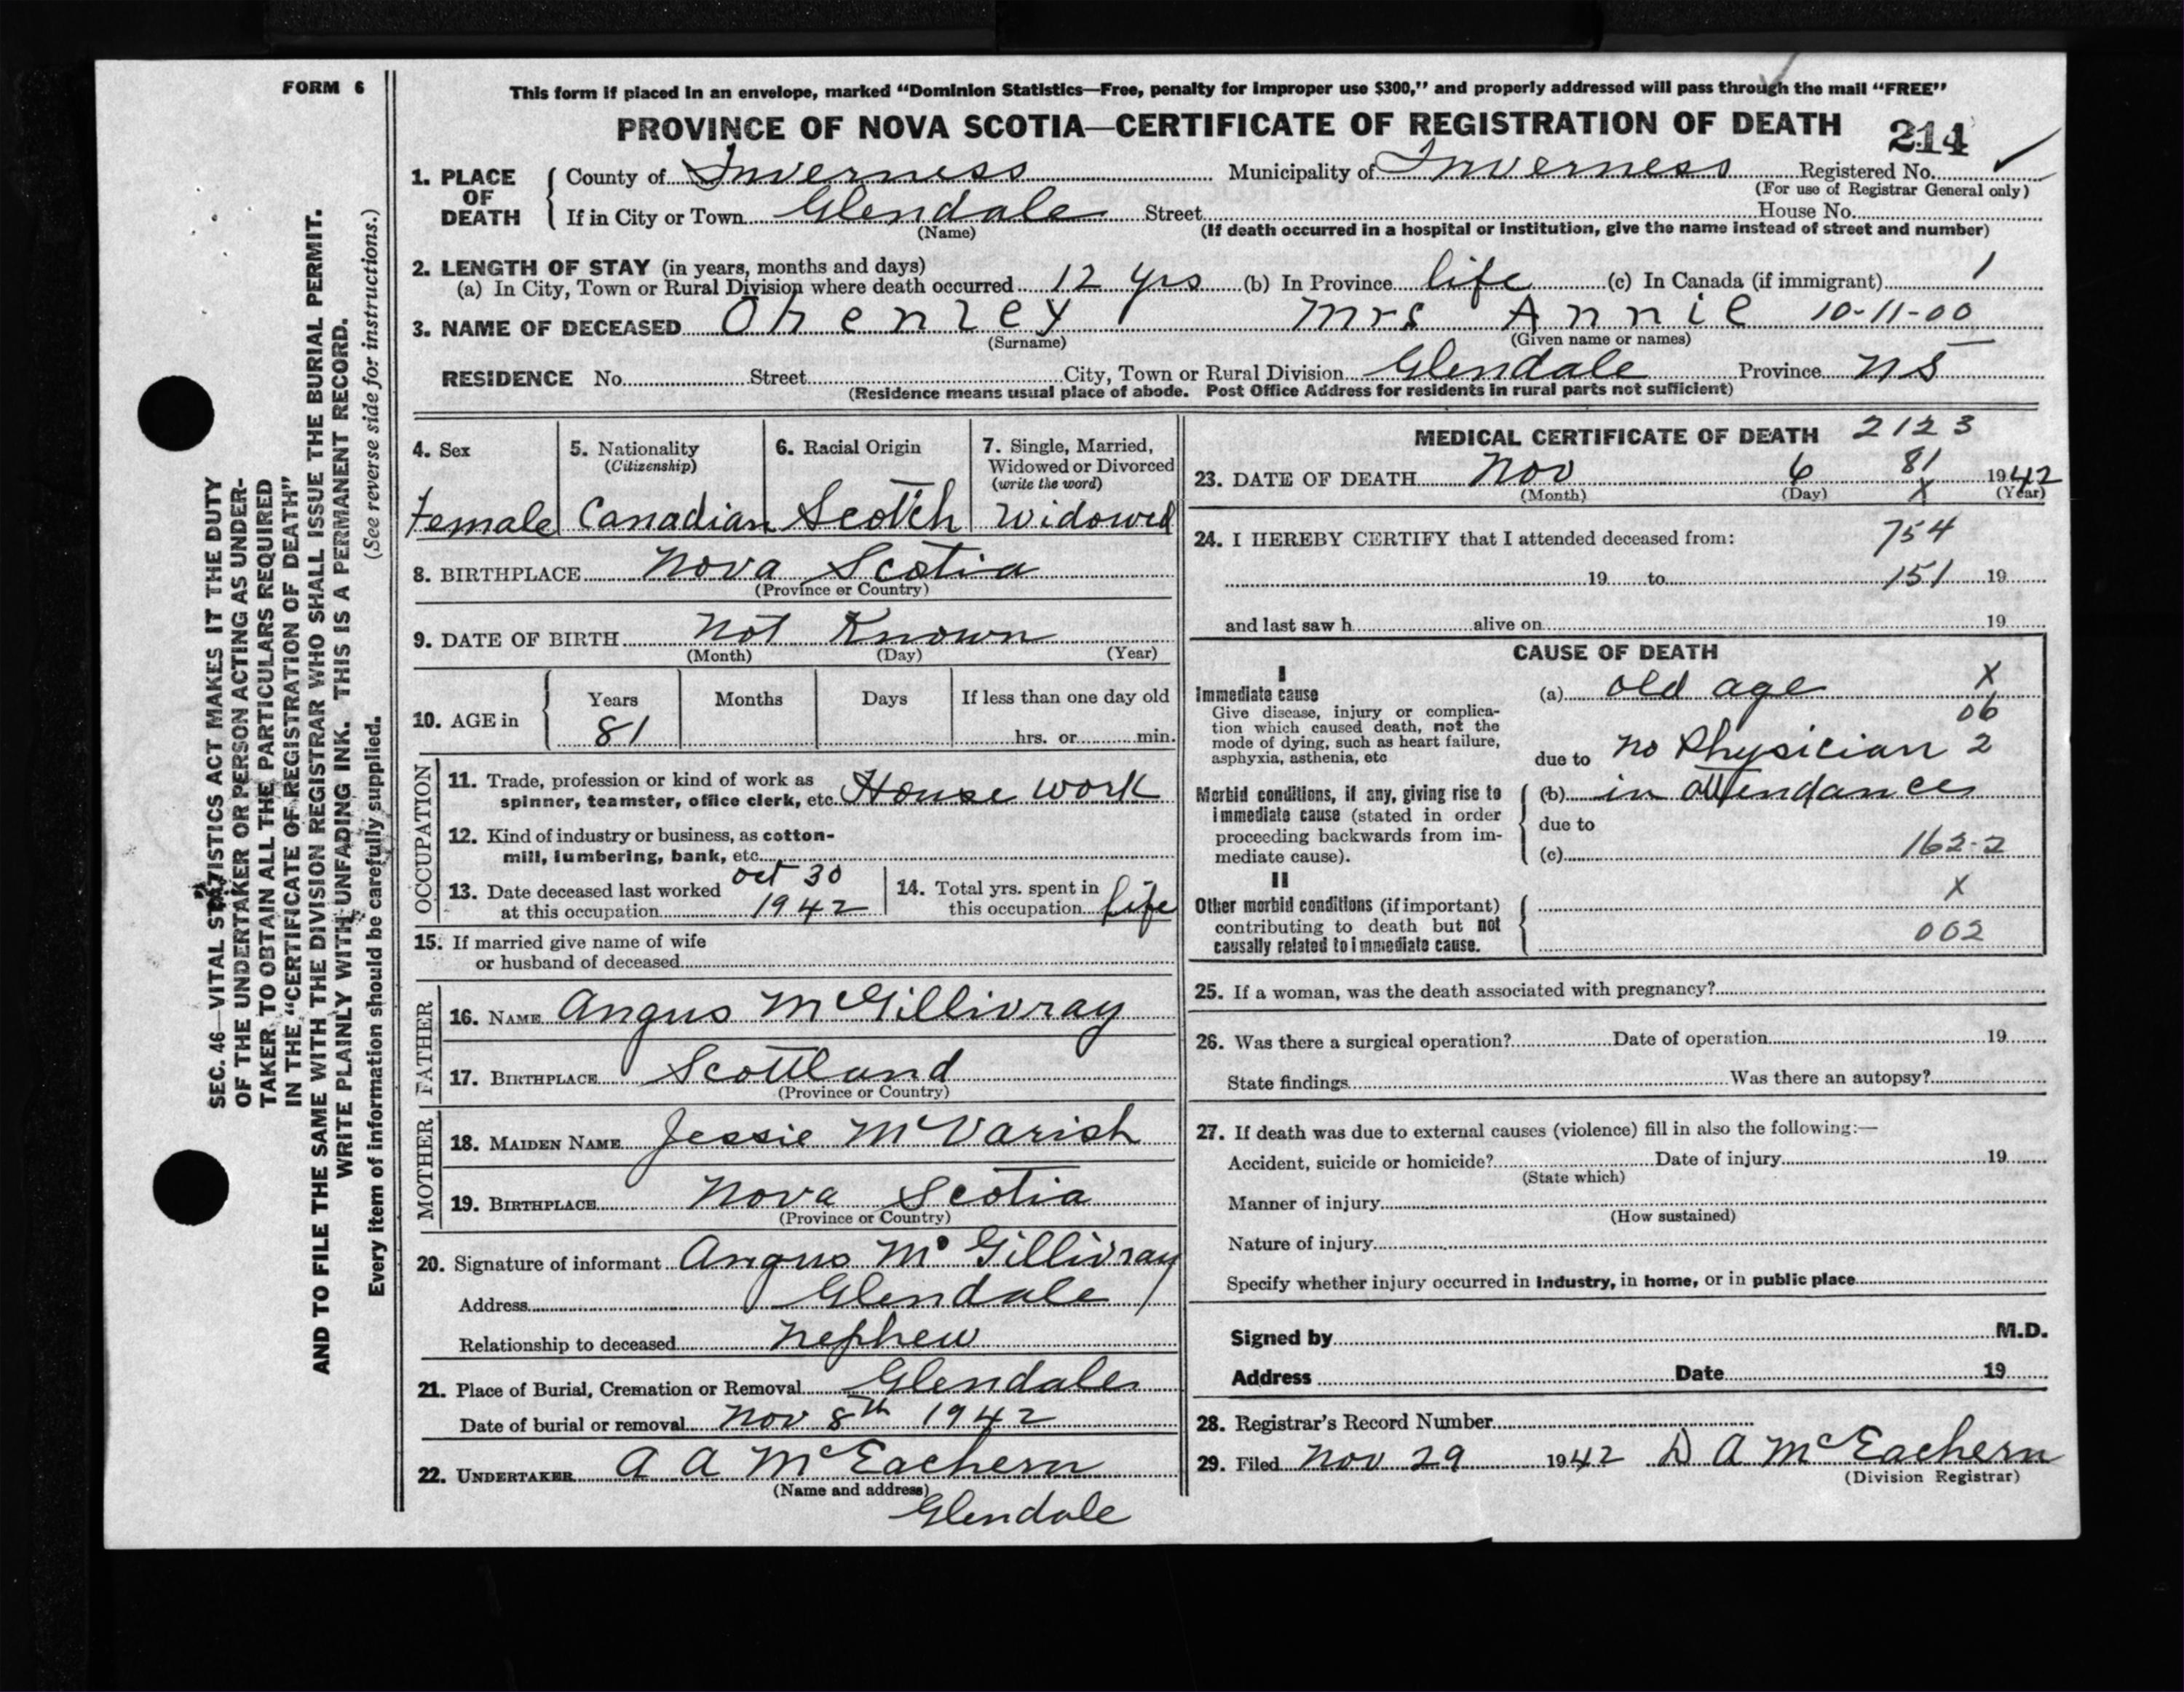 FORM 6
This form if placed in an envelope, marked "Dominion Statistics—Free, penalty for improper use $300," and properly addressed will pass through the mail "FREE"
PROVINCE OF NOVA SCOTIA—CERTIFICATE OF REGISTRATION OF DEATH 214
1. PLACE OF DEATH
County of Inverness Municipality of Inverness Registered No.
(For use of Registrar General only)
If in City or Town Glendale Street House No.
(Name) (If death occurred in a hospital or institution, give the name instead of street and number)
2. LENGTH OF STAY (in years, months and days)
(a) In City, Town or Rural Division where death occurred 12 yrs (b) In Province life (c) In Canada (if immigrant) 1
3. NAME OF DECEASED Ohenley Mrs Annie 10-11-00
(Surname) (Given name or names)
RESIDENCE No. Street City, Town or Rural Division Glendale Province NS
(Residence means usual place of abode. Post Office Address for residents in rural parts not sufficient)
4. Sex
Female
5. Nationality
(Citizenship)
Canadian
6. Racial Origin
Scotch
7. Single, Married,
Widowed or Divorced
(write the word)
Widowed
8. BIRTHPLACE Nova Scotia
(Province or Country)
9. DATE OF BIRTH Not Known
(Month) (Day) (Year)
10. AGE in
Years Months Days If less than one day old
81 hrs. or min.
OCCUPATION
11. Trade, profession or kind of work as
spinner, teamster, office clerk, etc. House work
12. Kind of industry or business, as cotton-
mill, lumbering, bank, etc.
13. Date deceased last worked Oct 30
at this occupation 1942
14. Total yrs. spent in
this occupation life
15. If married give name of wife
or husband of deceased
FATHER
16. NAME Angus McGillivray
17. BIRTHPLACE Scottland
(Province or Country)
MOTHER
18. MAIDEN NAME Jessie McVarish
19. BIRTHPLACE Nova Scotia
(Province or Country)
20. Signature of informant Angus Mc Gillivray
Address Glendale
Relationship to deceased nephew
21. Place of Burial, Cremation or Removal Glendale
Date of burial or removal Nov 8th 1942
22. UNDERTAKER A A McEachern
(Name and address)
Glendale
MEDICAL CERTIFICATE OF DEATH 2123
81
23. DATE OF DEATH Nov 6 X 1942
(Month) (Day) (Year)
24. I HEREBY CERTIFY that I attended deceased from: 754
19 to 151 19
and last saw h alive on 19
CAUSE OF DEATH
I
Immediate cause
Give disease, injury or complica-
tion which caused death, not the
mode of dying, such as heart failure,
asphyxia, asthenia, etc
(a) old age X
06
due to no Physician 2
Morbid conditions, if any, giving rise to
immediate cause (stated in order
proceeding backwards from im-
mediate cause).
(b) in attendance
due to
(c) 162-2
II
Other morbid conditions (if important)
contributing to death but not
causally related to immediate cause.
X
002
25. If a woman, was the death associated with pregnancy?
26. Was there a surgical operation? Date of operation 19
State findings Was there an autopsy?
27. If death was due to external causes (violence) fill in also the following:—
Accident, suicide or homicide? Date of injury 19
(State which)
Manner of injury
(How sustained)
Nature of injury
Specify whether injury occurred in industry, in home, or in public place
Signed by M.D.
Address Date 19
28. Registrar's Record Number
29. Filed Nov 29 1942 D A McEachern
(Division Registrar)
SEC. 46—VITAL STATISTICS ACT MAKES IT THE DUTY
OF THE UNDERTAKER OR PERSON ACTING AS UNDER-
TAKER TO OBTAIN ALL THE PARTICULARS REQUIRED
IN THE "CERTIFICATE OF REGISTRATION OF DEATH"
AND TO FILE THE SAME WITH THE DIVISION REGISTRAR WHO SHALL ISSUE THE BURIAL PERMIT.
WRITE PLAINLY WITH UNFADING INK. THIS IS A PERMANENT RECORD.
Every item of information should be carefully supplied. (See reverse side for instructions.)